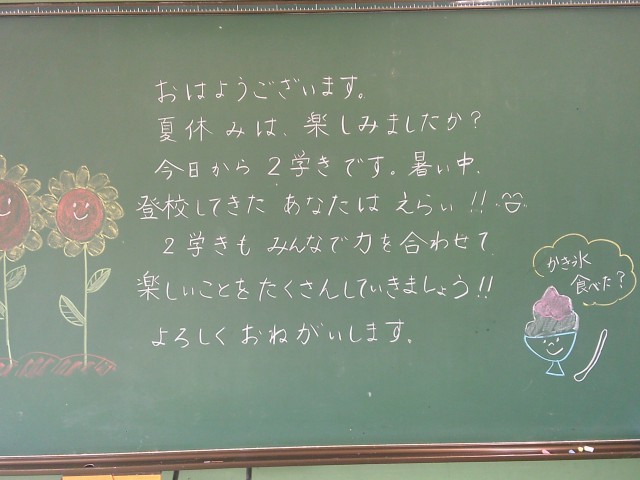 おはようございます。
夏休みは、楽しみましたか?
今日から2学きです。暑い中、
登校してきたあなたはえらい!!
2学きもみんなで力を合わせて
楽しいことをたくさんしていきましょう!!
よろしくおねがいします。
かき氷
食べた?